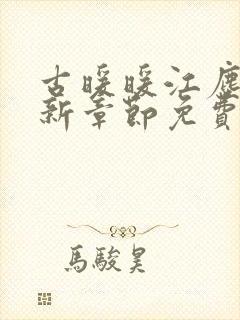 古暖暖江塵
新章節免費
馬駿昊